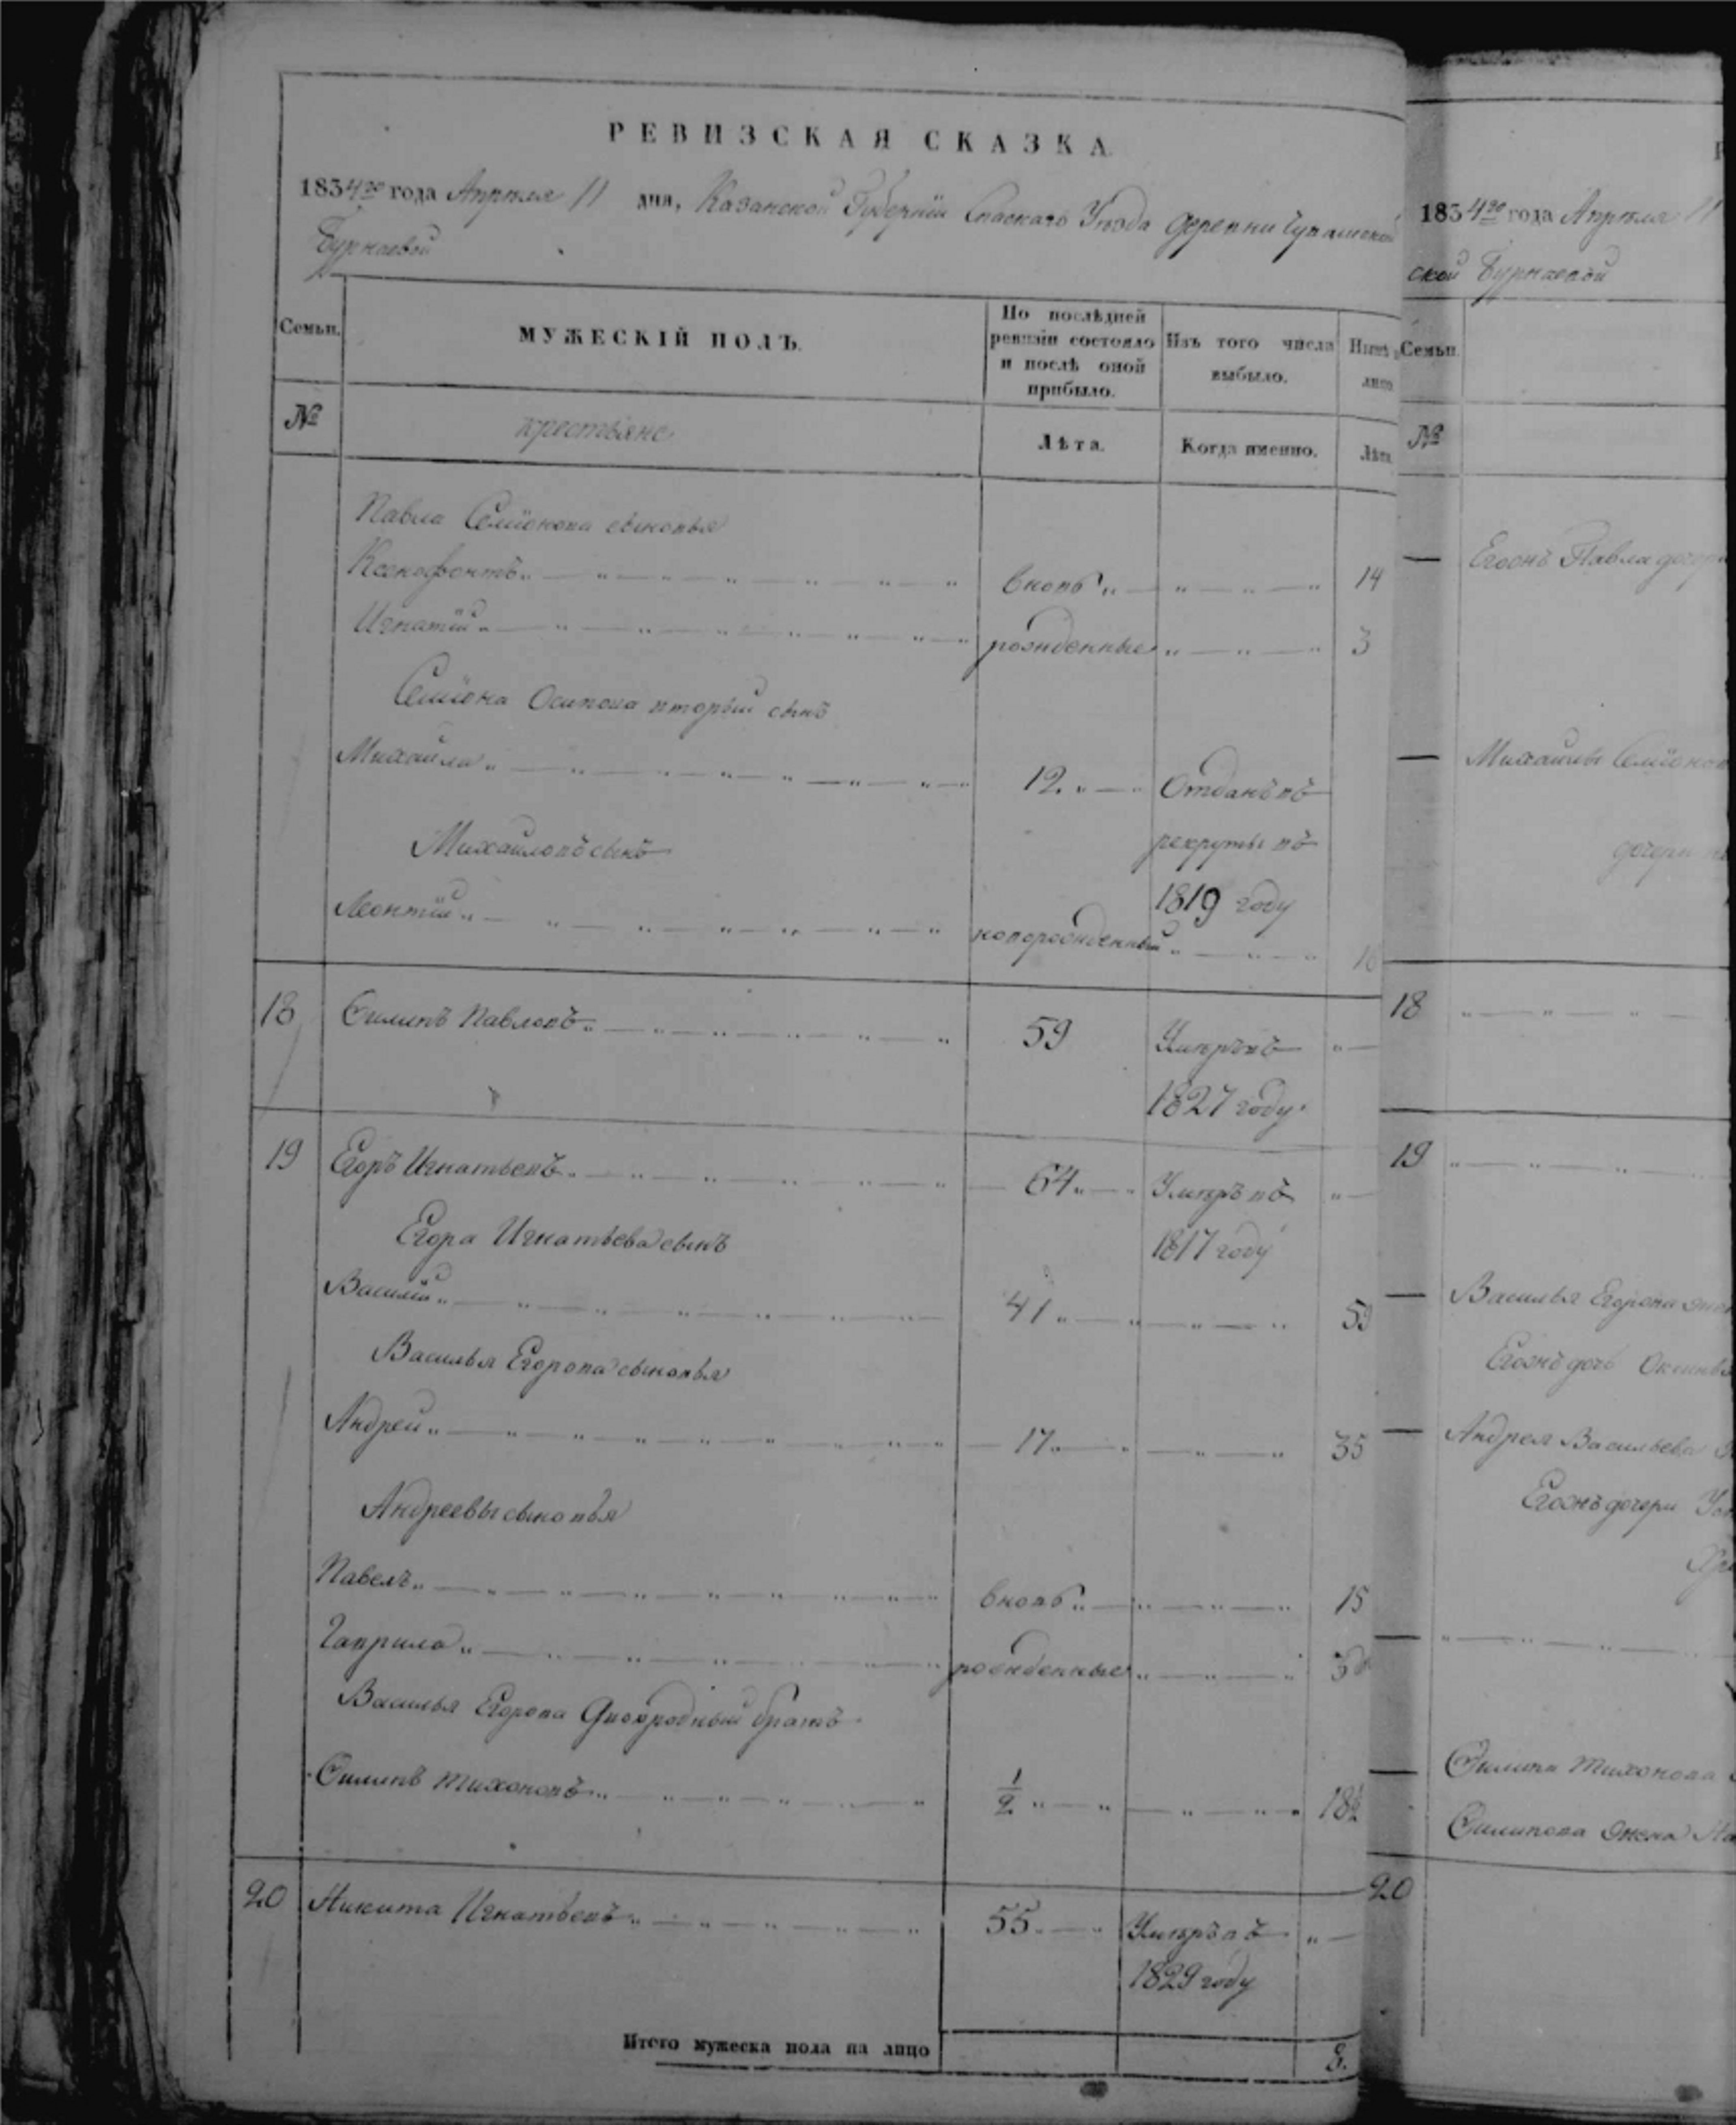 РЕВИЗСКАЯ СКАЗКА
1834го года Апреля 11 дня, Казанской Губернiи Спаскаго Уезда деревни Чувашской
Бурнаевой
Семьи. МУЖЕСКIЙ ПОЛЪ. По послѣдней ревизiи состояло и послѣ оной прибыло. Изъ того числа выбыло.
№ крестьяне Лѣта. Когда именно. Лѣта.
Павла Семiонова сыновья
Ксенофонтъ вновь 14
Игнатiй рожденные 3
Семiона Осипова вторый сынъ
Михайла 12 Отданъ въ
Михайловъ сынъ рекруты въ
1819 году
Леонтiй новорожденный 16
18 Филипъ Павловъ 59 Умеръ въ
1827 году
19 Егоръ Игнатьевъ 64 Умеръ въ
Егора Игнатьева сынъ 1817 году
Василiй 41 59
Василья Егорова сыновья
Андрей 17 35
Андреевы сыновья
Павелъ вновь 15
Гаврила рожденные 3
Василья Егорова Двоюродный братъ
Филипъ Тихоновъ 1/2 18½
20 Никита Игнатьевъ 55 Умеръ въ
1829 году
Итого мужеска пола на лицо 8.
1834го года Апреля 11
ской Бурнаевой
Семьи.
№
Егожъ Павла дочери
Михайлы Семiонова
дочери
18
19
Василья Егорова жена
Егожъ дочь
Андрея Васильева
Егожъ дочери
Филипа Тихонова
Филипова жена
20